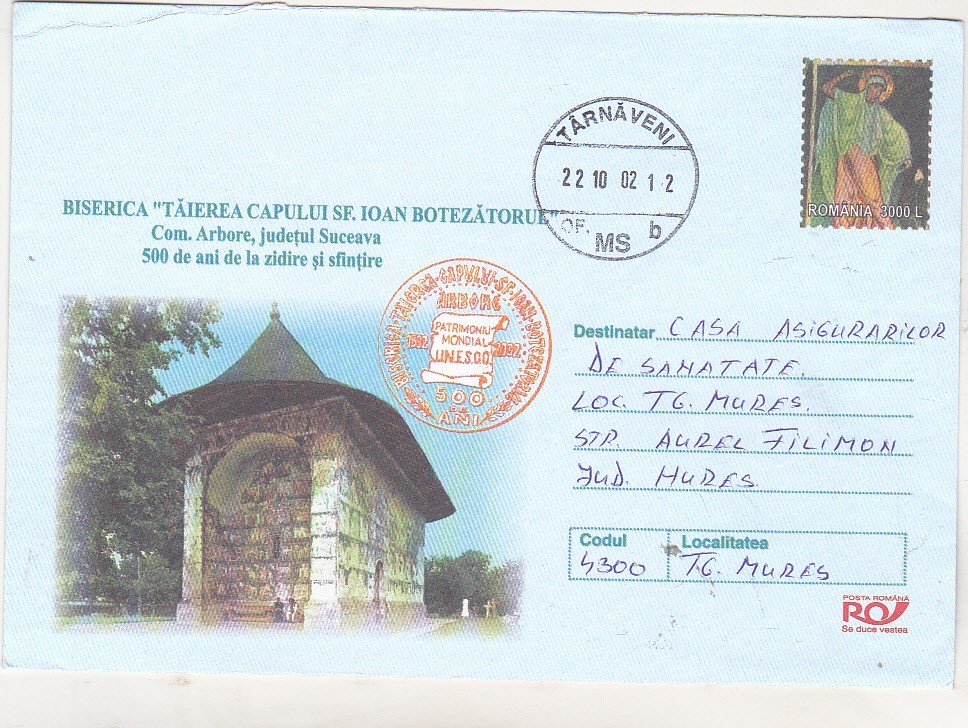 ROMÂNIA 3000 L
TÂRNĂVENI
22 10 02 1 2
OF. MS b
BISERICA "TĂIEREA CAPULUI SF. IOAN BOTEZĂTORUL"
Com. Arbore, județul Suceava
500 de ani de la zidire și sfințire
BISERICA·TĂIEREA·CAPULUI·SF·IOAN·BOTEZĂTORUL
ARBORE
PATRIMONIU
MONDIAL
U.N.E.S.C.O.
1502 2002
500
DE
ANI
Destinatar CASA ASIGURARILOR
DE SANATATE.
LOC. TG. MURES.
STR. AUREL FILIMON
JUD. MURES.
Codul Localitatea
4300 TG. MURES
POSTA ROMÂNĂ
RO
Se duce vestea